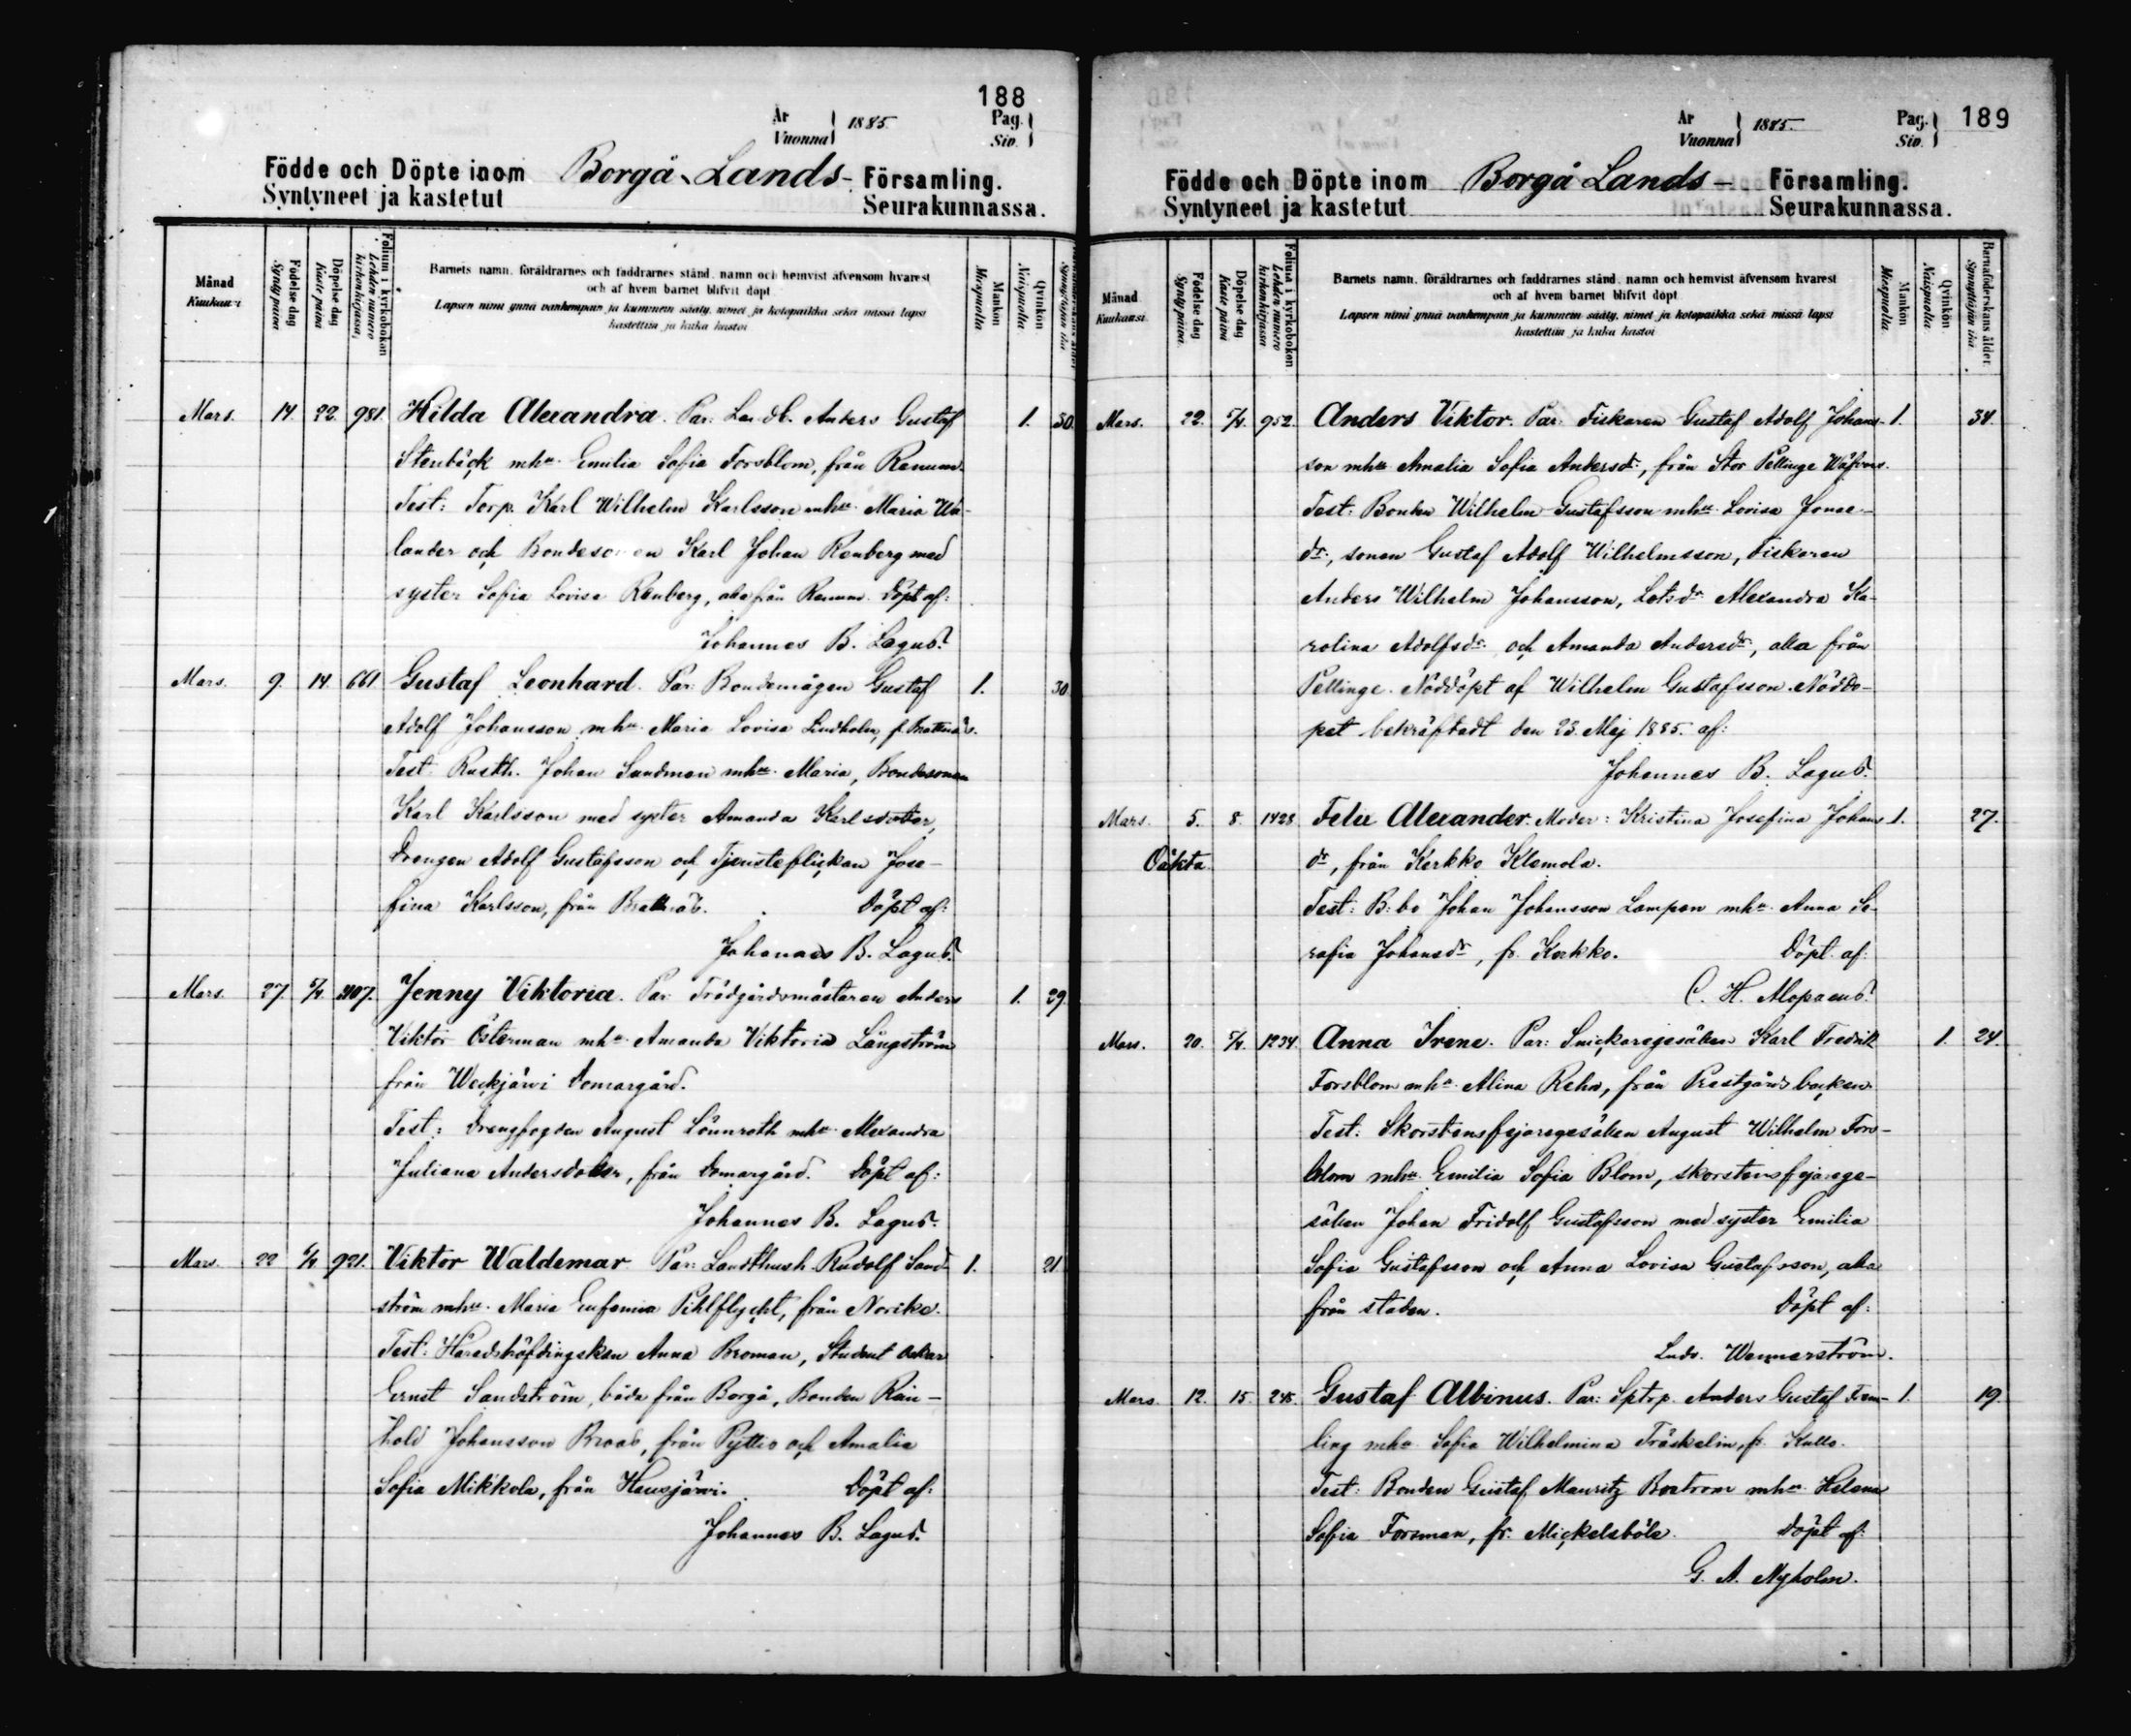 188
År
Vuonna
1885.
Pag.
Siv.
Födde och Döpte inom Borgå Lands- Församling.
Syntyneet ja kastetut Seurakunnassa.
Månad
Kuukausi
Födelse dag
Synty päivä
Döpelse dag
Kaste päivä
Folium i kyrkoboken
Lehden numero
kirkonkirjassa
Barnets namn, föräldrarnes och faddrarnes stånd, namn och hemvist äfvensom hvarest
och af hvem barnet blifvit döpt
Lapsen nimi ynnä vanhempain ja kummein sääty, nimet ja kotopaikka sekä missä lapsi
kastettiin ja kuka kastoi
Mankön
Miespuolia
Qvinkön
Naispuolia
Mars. 14. 22. 981. Hilda Alexandra. Par: Landb. Anders Gustaf 1. 30.
Stenbäck mhu Emilia Sofia Forsblom, från Renum.
Test: Torp. Karl Wilhelm Karlsson mhu Maria We-
lander och Bondesonen Karl Johan Renberg med
syster Sofia Lovisa Renberg, alla från Renum. Döpt af:
Johannes B. Lagus.
Mars. 9. 14. 661 Gustaf Leonhard. Par: Bondemågen Gustaf 1. 30.
Adolf Johansson mhu Maria Lovisa Lindholm, f. Brattnäs.
Test: Rusth. Johan Sundman mhu Maria, Bondesonen
Karl Karlsson med syster Amanda Karlsdotter,
Drengen Adolf Gustafsson och Tjensteflickan Jose-
fina Karlsson, från Brattnäs. Döpt af:
Johannes B. Lagus.
Mars. 27. 5/4. 1107. Jenny Viktoria. Par: Trädgårdsmästaren Anders 1. 29.
Viktor Österman mhu Amanda Viktoria Långström
från Weckjärvi Domargård.
Test: Drengfogden August Lönnroth mhu Alexandra
Juliana Andersdotter, från Domargård. Döpt af:
Johannes B. Lagus.
Mars. 22 6/4. 921. Viktor Waldemar Par: Landthush. Rudolf Sand- 1. 21
ström mhu Maria Eufemia Pihlflycht, från Norike.
Test: Häradshöfdingskan Anna Broman, Student Oskar
Ernst Sandström, båda från Borgå, Bonden Rein-
hold Johansson Broas, från Pyttis och Amalia
Sofia Mikkola, från Hausjärvi. Döpt af:
Johannes B. Lagus.
År
Vuonna
1885.
Pag.
Siv.
189
Födde och Döpte inom Borgå Lands- Församling.
Syntyneet ja kastetut Seurakunnassa.
Månad
Kuukausi
Födelse dag
Synty päivä
Döpelse dag
Kaste päivä
Folium i kyrkoboken
Lehden numero
kirkonkirjassa
Barnets namn, föräldrarnes och faddrarnes stånd, namn och hemvist äfvensom hvarest
och af hvem barnet blifvit döpt
Lapsen nimi ynnä vanhempain ja kummein sääty, nimet ja kotopaikka sekä missä lapsi
kastettiin ja kuka kastoi
Mankön
Miespuolia
Qvinkön
Naispuolia
Barnaföderskans ålder
Synnyttäjän ikä
Mars. 22. 5/4. 952. Anders Viktor. Par: Fiskaren Gustaf Adolf Johans- 1. 34.
son mhu Amalia Sofia Andersdr, från Stor Pellinge Wäfvars.
Test: Bonden Wilhelm Gustafsson mhu Lovisa Jonae-
dr, sonen Gustaf Adolf Wilhelmsson, Fiskaren
Anders Wilhelm Johansson, Lotsdr Alexandra Ka-
rolina Adolfsdr och Amanda Andersdr, alla från
Pellinge. Nöddöpt af Wilhelm Gustafsson. Nöddo-
pet bekräftadt den 23. Maj 1885. af:
Johannes B. Lagus.
Mars. 5. 8. 1428 Felix Alexander. Moder: Kristina Josefina Johans 1. 27.
Oäkta. dr, från Kerkko Klemola.
Test: B:bo Johan Johansson Lampen mhu Anna Se-
rafia Johansdr, fr. Kerkko. Döpt af:
C. H. Alopaeus.
Mars. 20. 5/4. 1234. Anna Irene. Par: Snickaregesällen Karl Fredrik 1. 24.
Forsblom mhu Alina Rehn, från Prestgårds backen.
Test: Skorstensfejaregesällen August Wilhelm Fors-
blom mhu Emilia Sofia Blom, skorstensfejarege-
sällen Johan Fridolf Gustafsson med syster Emilia
Sofia Gustafsson och Anna Lovisa Gustafsson, alla
från staden. Döpt af:
Ludv. Wennerström.
Mars. 12. 15. 245. Gustaf Albinus. Par: Sptrp. Anders Gustaf Fram- 1. 19.
ling mhu Sofia Wilhelmina Träskelin, fr. Kullo.
Test: Bonden Gustaf Mauritz Boström mhu Helena
Sofia Forsman, fr. Mickelsböle. Döpt af:
G. A. Nyholm.